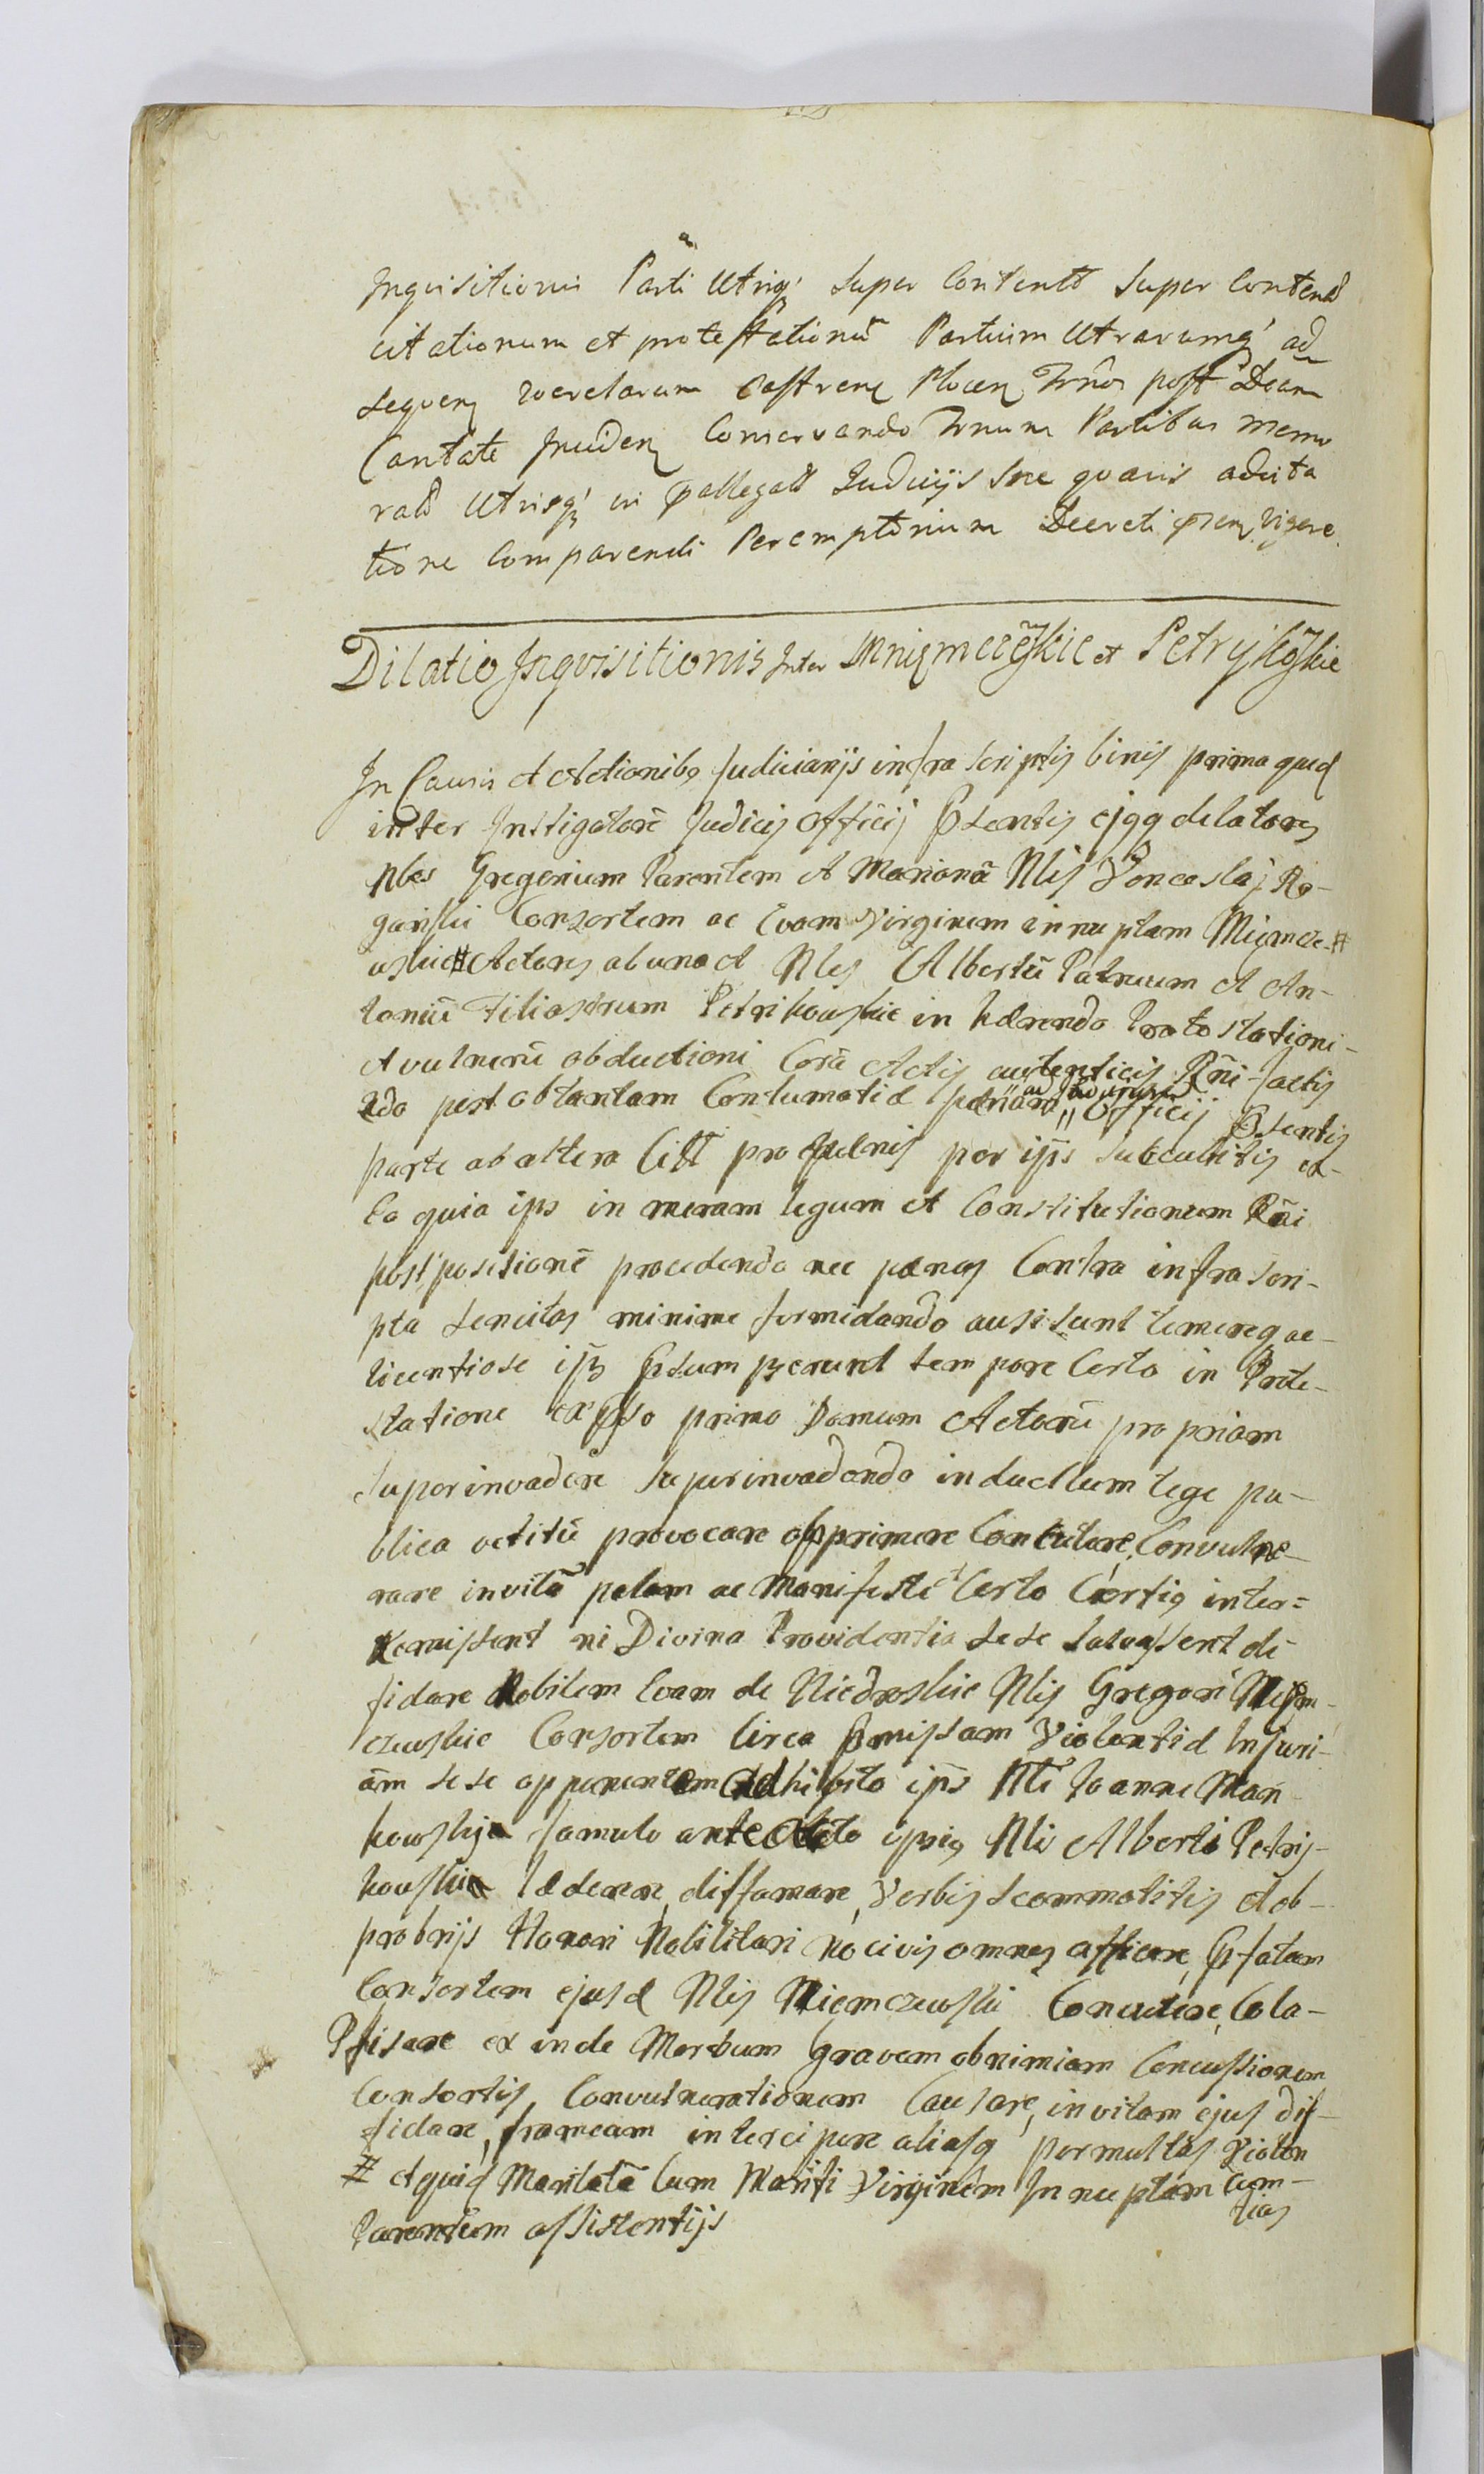 Inquisitionis Parti Utriq; super Contentt super Contend
citationum et protestationū Partium Utrarumq; ad
sequen querelarum Castren Plocen Trnos post Dcam
Cantate Inciden Conservando Trnum Partibus memo
ratt Utrisq; in pallegatt Judicijs sne quavis adcita
tione Comparendi Peremptorium Decreti psen Vigore.
Dilatio Inqvisitionis Inter et
In Causis et Actionibg Judiciarijs infra scriptis binis prima quid
inter Instigatorē Judicij Officij Psentis ejqq delatores
Nbes Gregorium Parentem et Marianā Nlis Ro-
gański Consortem ac Evam Virginem innuptam Miemcze-#
wskie # Actores ab una et Nles Albertū Patruum et An-
toniū Filiastrum Petrikowskie in hærendo Protostationi-
et vulnerū obductioni Corā Actis autenticis Rni factis
post obtentam Contumatid Officij Psentis
parte ab altera Citt pro per ips et-
Eo quia ips in meram legum et Constitutionum Rni
postpositionē procedendo nec pænas Contra infrascri-
pta sencitas minime formidando ausi sunt temereq ac-
licentiose ips Psumpserunt tempore Certo in Prote-
statione expso primo Domum Actorū propriam
superinvadere superinvadendo induellum lege pu-
blica vetitū provocare opprimere Concutare, Convulne-
rare invitā palam ac Manifeste Certo Certiq inter=
Remissent ni Divina Providentia sese salvassent di-
fidare Nobilem Evam de Niedroskie Nlis Gregori Miem-
czewskie Consortem Circa Pmissam Violentid Injuri-
am sese opponentem Adhibito ips Nli Joanne Man-
kowskij famulo ante ipsiq Nli Alberti Petrij-
kowskie lædere, diffamare, Verbis scommatitis et ob-
probrijs Honori Nobilitari nocivis omnes afficere, Pfatam
Consortem ejusd Nlis Niemczewski Concutere, Cola-
Phisare ex inde Morbum gravem obnimiam Concussionem
Consortis, Convulnerationem Causare, in vitam ejus dif-
fidare, frameam intercipere aliasq permultas Violen
tias
# et quid Maritatā Cum Mariti Virginem Innuptam Cum-
Parentum assistentijs